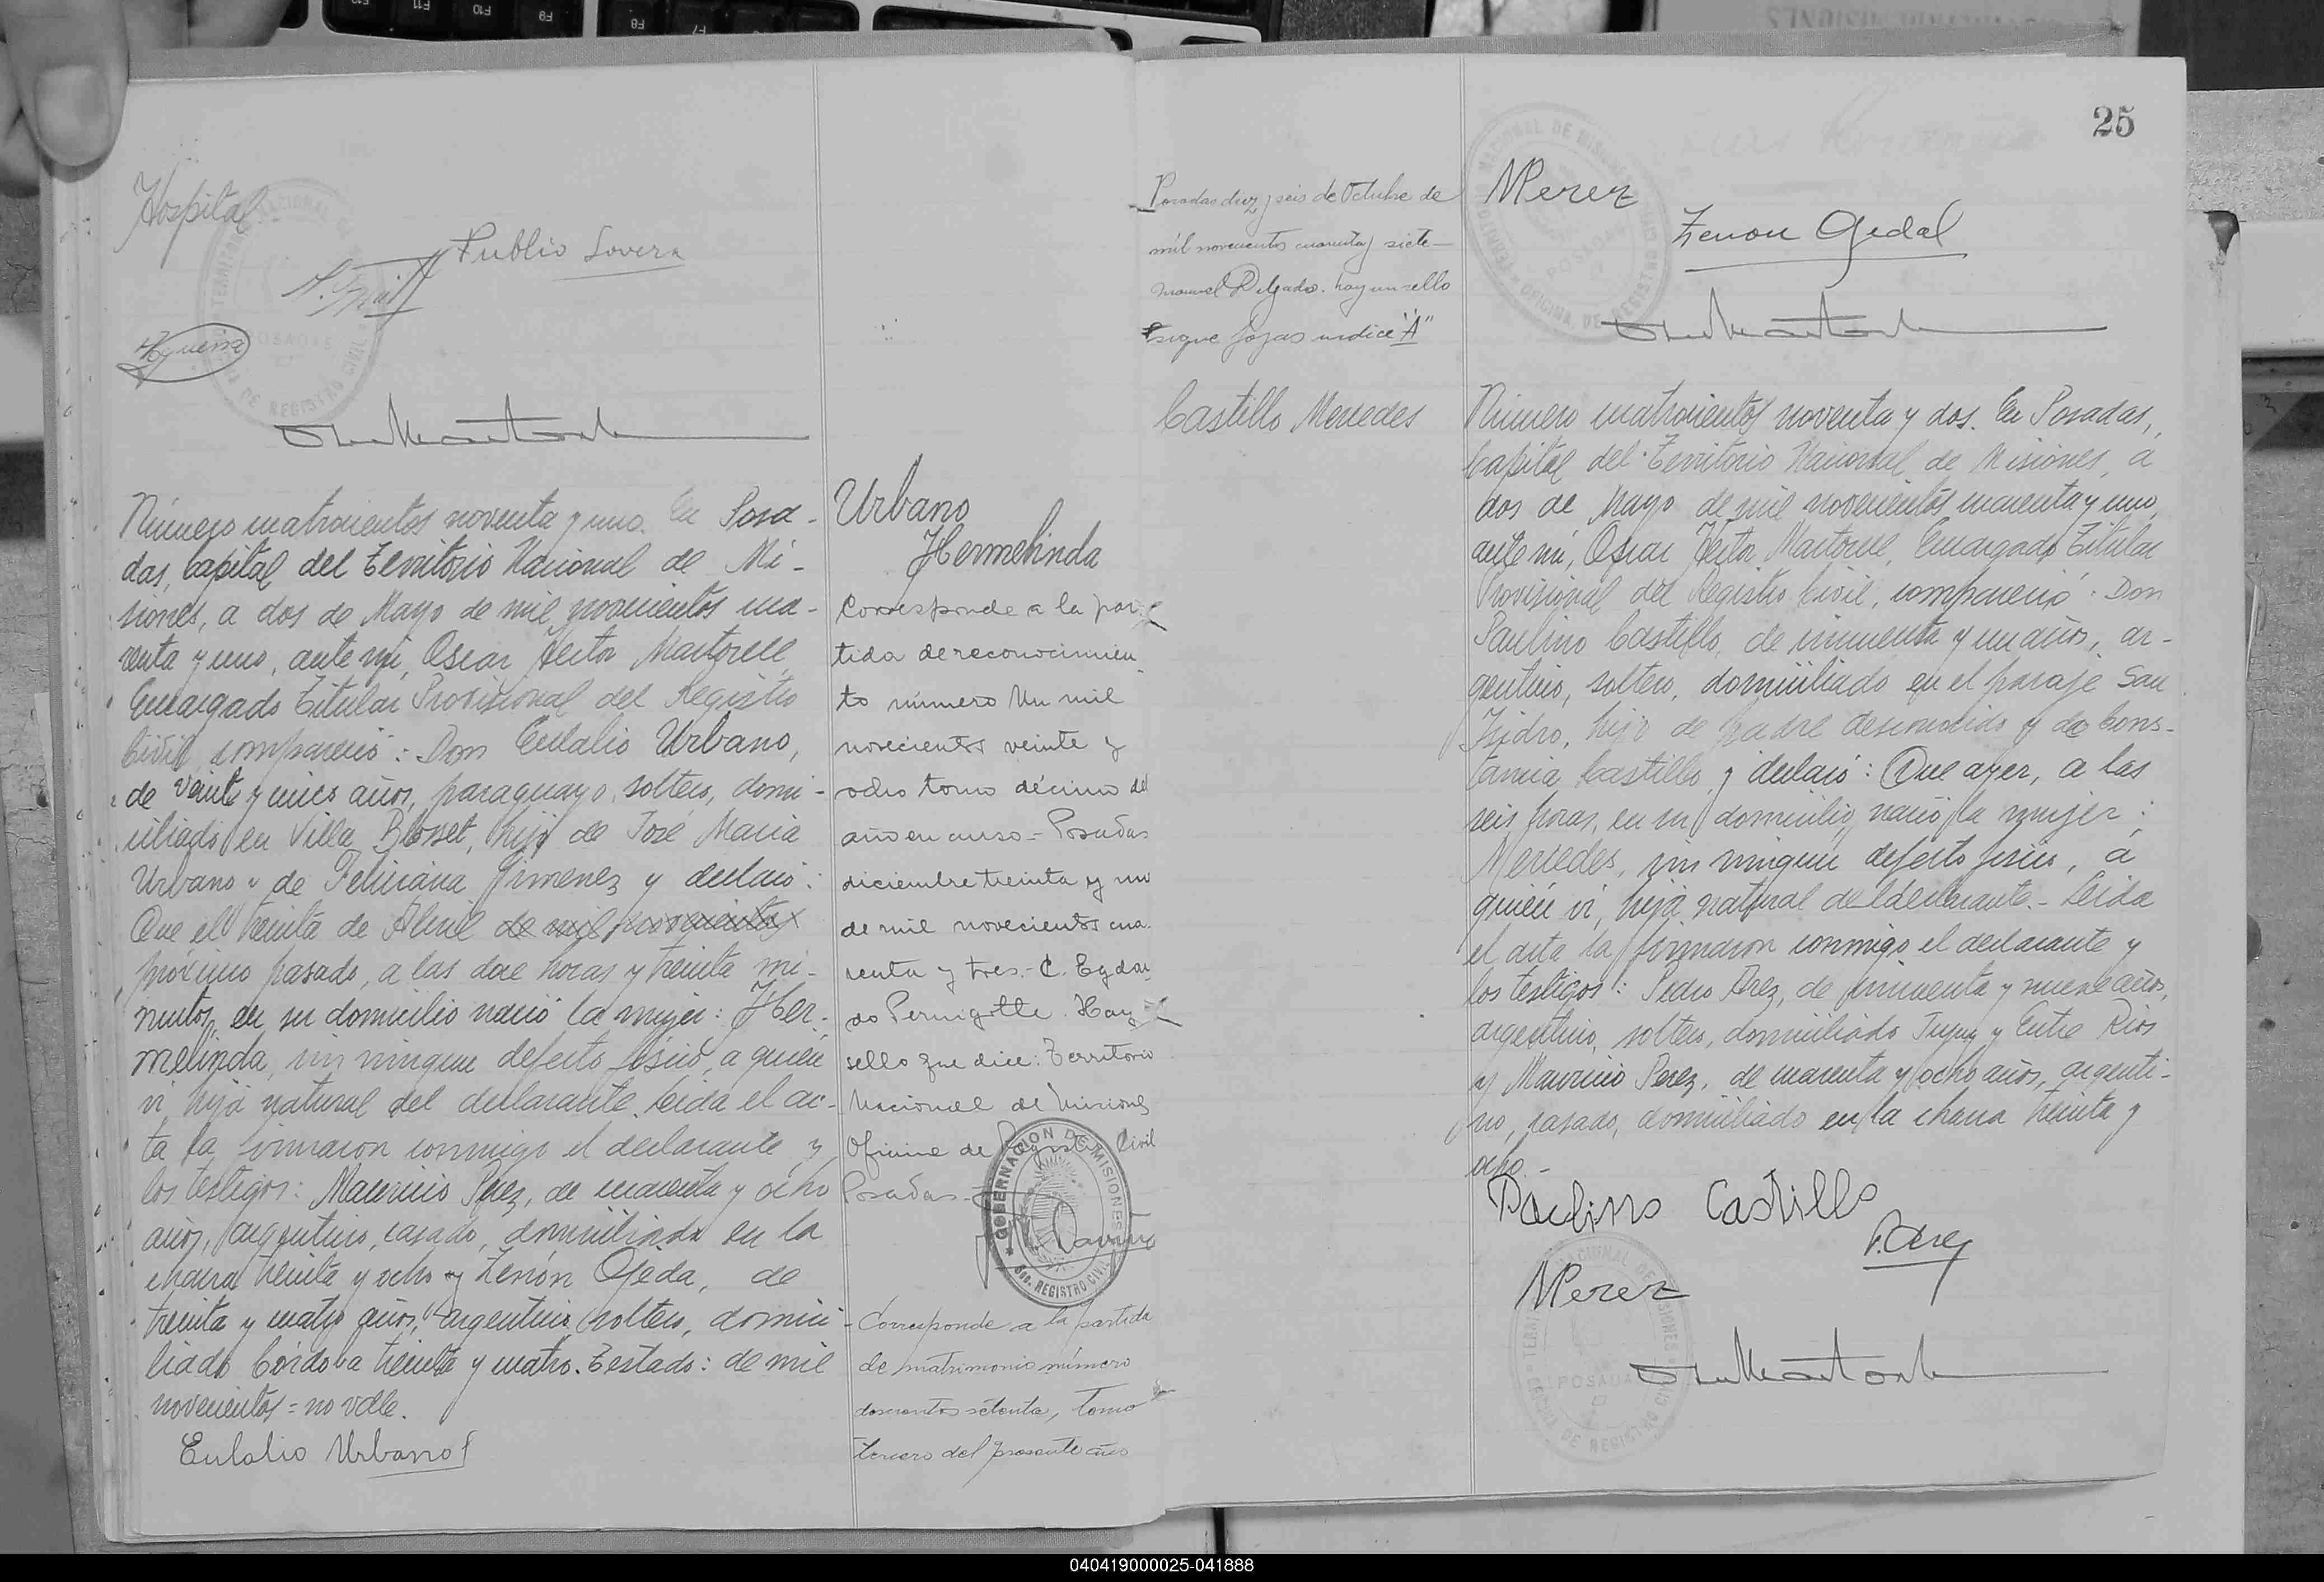 Hospital
Publio Lovera
Número cuatrocientos noventa y uno. En Posa-
das, Capital del Territorio Nacional de Mi-
siones, a dos de Mayo de mil novecientos cua-
renta y uno, ante mí, Oscar Héctor Martorell,
Encargado Titular Provisional del Registro
Civil, compareció: Don Eulalio Urbano,
de veinte y cinco años, paraguayo, soltero, domi-
ciliado en Villa Blosset, hijo de José María
Urbano y de Feliciana Gimenez y declaró:
Que el treinta de Abril de mil novecientos
próximo pasado, a las doce horas y treinta mi-
nutos, en su domicilio nació la mujer: Her-
melinda, sin ningun defecto físico, a quién
vi, hija natural del declarante. Leída el ac-
ta la firmaron conmigo el declarante y
los testigos: Mauricio Perez, de cuarenta y ocho
años, argentino, casado, domiciliado en la
chacra treinta y ocho y Zenón Ojeda, de
treinta y cuatro años, argentino, soltero, domici-
liado Córdoba treinta y cuatro. Testado: de mil
novecientos = no vale.
Eulalio Urbano
Urbano
Hermelinda
Corresponde a la par
tida de reconocimien
to número Un mil
novecientos veinte y
ocho tomo décimo del
año en curso - Posadas
diciembre treinta y uno
de mil novecientos cua-
renta y tres.- C. Egdar
do Pernigotte. Hay
sello que dice: Territorio
Nacional de Misiones
Oficina de Registro Civil
Posadas.-
GOBERNACION DE MISIONES
SEC. REGISTRO CIVIL
Corresponde a la partida
de matrimonio número
doscientos setenta, Tomo
tercero del presente año
Posadas diez y seis de Octubre de
mil novecientos cuarenta y siete-
Manuel Delgado. hay un sello
sigue fojas indice "A"
Castillo Mercedes
25
MPerez
Zenon Ojedal
Número cuatrocientos noventa y dos. En Posadas,
Capital del Territorio Nacional de Misiones, a
dos de Mayo de mil novecientos cuarenta y uno,
ante mí, Oscar Héctor Martorell, Encargado Titular
Provisional del Registro Civil, compareció: Don
Paulino Castillo, de cincuenta y un años, ar-
gentino, soltero, domiciliado en el paraje San
Isidro, hijo de padre desconocido y de Cons-
tancia Castillo, y declaró: Que ayer, a las
seis horas, en su domicilio, nació la mujer:
Mercedes, sin ningun defecto físico, a
quién vi, hija natural del declarante.- Leída
el acta la firmaron conmigo el declarante y
los testigos: Pedro Arez, de cincuenta y nueve años,
argentino, soltero, domiciliado Jujuy y Entre Rios
y Mauricio Perez, de cuarenta y ocho años, argenti-
no, casado, domiciliado en la chacra treinta y
ocho.-
Paulino Castillo
P. Arez
MPerez
040419000025-041888